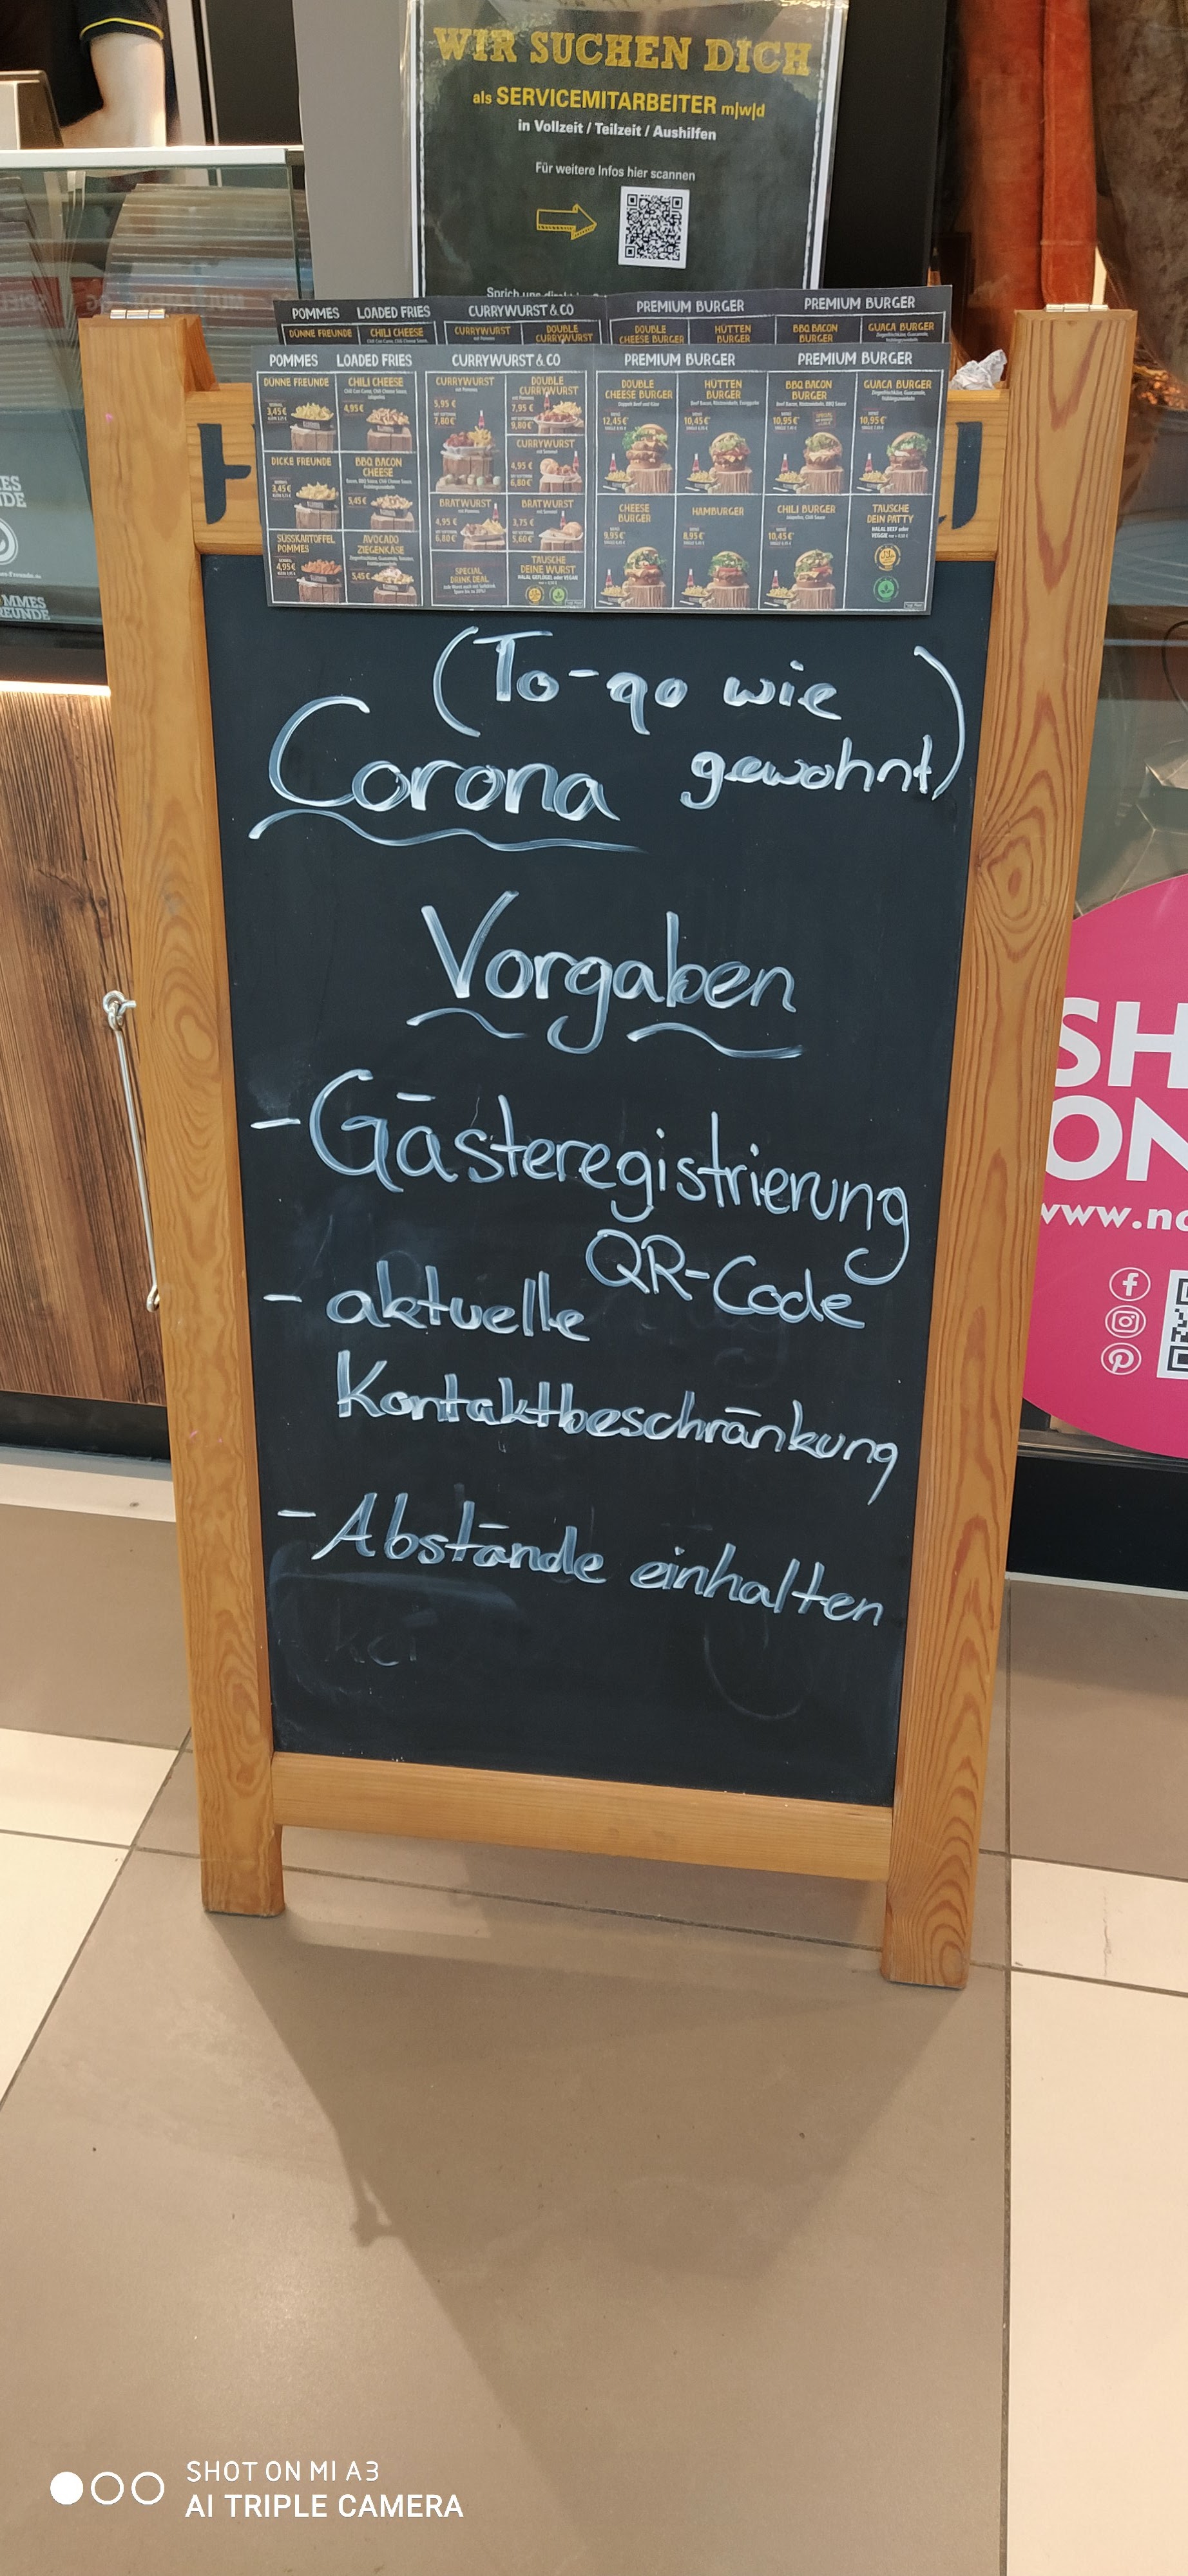 WIR SUCHEN DICH
als SERVICEMITARBEITER m|w|d
in Vollzeit / Teilzeit / Aushilfen
Für weitere Infos hier scannen
POMMES LOADED FRIES CURRYWURST & CO PREMIUM BURGER PREMIUM BURGER
DÜNNE FREUNDE CHILI CHEESE CURRYWURST DOUBLE CURRYWURST DOUBLE CHEESE BURGER HÜTTEN BURGER BBQ BACON BURGER GUACA BURGER
POMMES LOADED FRIES CURRYWURST & CO PREMIUM BURGER PREMIUM BURGER
DÜNNE FREUNDE
3,45€
CHILI CHEESE
4,95€
DICKE FREUNDE
3,45€
BBQ BACON CHEESE
5,45€
SÜSSKARTOFFEL POMMES
4,95€
AVOCADO ZIEGENKÄSE
5,45€
CURRYWURST
5,95 €
7,80€
DOUBLE CURRYWURST
7,95 €
9,80€
CURRYWURST
4,95 €
6,80€
BRATWURST
4,95 €
6,80€
BRATWURST
3,75 €
5,60€
SPECIAL DRINK DEAL
TAUSCHE DEINE WURST
HALAL GEFLÜGEL oder VEGAN
DOUBLE CHEESE BURGER
12,45€
HÜTTEN BURGER
10,45€
BBQ BACON BURGER
10,95€
GUACA BURGER
10,95€
CHEESE BURGER
9,95€
HAMBURGER
8,95€
CHILI BURGER
10,45€
TAUSCHE DEIN PATTY
HALAL BEEF oder VEGGIE
(To-go wie
gewohnt)
Corona
Vorgaben
- Gästeregistrierung
QR-Code
- aktuelle
Kontaktbeschränkung
- Abstände einhalten
SH
ON
www.no
SHOT ON MI A3
AI TRIPLE CAMERA